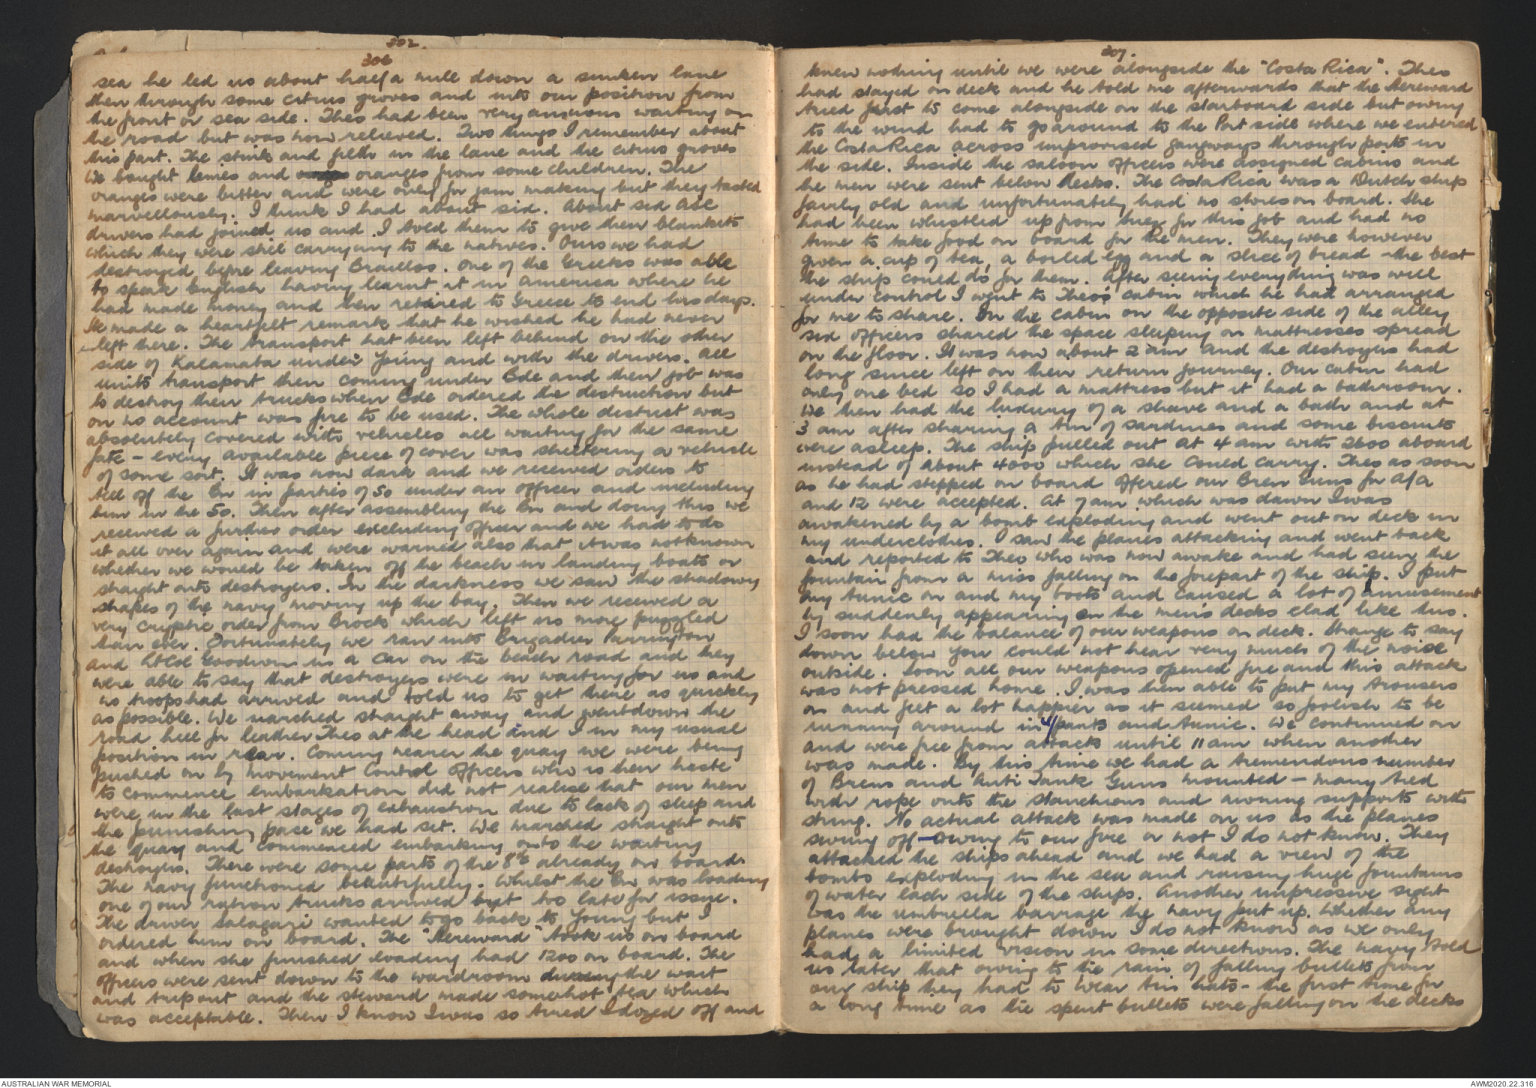 302.
306
sea he led us about half a mile down a sunken lane
then through some citrus groves and into our position from
the front or sea side. Theo had been very anxious waiting on
the road but was now relieved. Two things I remember about
this part. The stink and filth in the lane and the citrus groves
We bought lemes and oranges from some children. The
oranges were bitter and were only for jam making but they tasted
marvellously. I think I had about six. About six all
drivers had joined us and I told them to give their blankets
which they were still carrying to the natives. Ours we had
destroyed before leaving Brallos. One of the Greeks was able
to speak English having learnt it in America where he
had made money and then retired to Greece to end his days.
He made a heartfelt remark that he wished he had never
left there. The transport hat been left behind on the other
side of Kalamata under Young and with the drivers. All
units transport then coming under Bde and their job was
to destroy their trucks when Bde ordered the destruction but
on no account was fire to be used. The whole district was
absolutely covered with vehicles all waiting for the same
fate - every available piece of cover was sheltering a vehicle
of some sort. It was now dark and we received orders to
tell off the Bn in parties of 50 under an officer and including
him in the 50. Then after assembling the Bn and doing this we
received a further order excluding officer and we had to do
it all over again and were warned also that it was not known
whether we would be taken off the beach in landing boats or
straight onto destroyers. In the darkness we saw the shadowy
shapes of the navy moving up the bay. Then we received a
very cryptic order from Brock which left us more puzzled
than ever. Fortunately we ran into Brigadier Parrington
and LtCol Goodwin in a car on the beach road and they
were able to say that destroyers were in waiting for us and
no troops had arrived and told us to get there as quickly
as possible. We marched straight away and went down the
road hell for leather Theo at the head and I in my usual
position in rear. Coming nearer the quay we were being
pushed on by Movement Control Officers who in their haste
to commence embarkation did not realise that our men
were in the last stages of exhaustion due to lack of sleep and
the punishing pace we had set. We marched straight onto
the quay and commenced embarking onto the waiting
destroyers. There were some parts of the 8th already on board.
The navy functioned beautifully. Whilst the Bn was loading
one of our ration trucks arrived but too late for issue.
The driver Salagari wanted to go back to Young but I
ordered him on board. The "Hereward" took us on board
and when she finished loading had 1200 on board. The
officers were sent down to the wardroom during the wait
and trip out and the steward made some hot tea which
was acceptable. Then I know I was so tired I dozed off and
307.
knew nothing until we were alongside the "Costa Rica". Theo
had stayed on deck and he told me afterwards that the Hereward
tried first to come alongside on the starboard side but owing
to the wind had to go around to the Port side where we entered
the Costa Rica across improvised gangways through ports in
the side. Inside the saloon officers were assigned cabins and
the men were sent below decks. The Costa Rica was a Dutch ship
fairly old and unfortunately had no stores on board. She
had been whistled up from Suez for this job and had no
time to take food on board for the men. They were however
given a cup of tea, a boiled egg and a slice of bread - the best
the ship could do for them. After seeing everything was well
under control I went to Theo's cabin which he had arranged
for me to share. In the cabin on the opposite side of the alley
six officers shared the space sleeping on mattresses spread
on the floor. It was now about 2 am and the destroyers had
long since left on their return journey. Our cabin had
only one bed so I had a mattress but it had a bathroom.
We then had the luxury of a shave and a bath and at
3 am after sharing a tin of sardines and some biscuits
were asleep. The ship pulled out at 4 am with 2600 aboard
instead of about 4000 which she could carry. Theo as soon
as he had stepped on board offered our Bren Guns for A/A
and 12 were accepted. At 7 am which was dawn I was
awakened by a bomb exploding and went out on deck in
my underclothes. I saw the planes attacking and went back
and reported to Theo who was now awake and had seen the
fountain from a miss falling on the forepart of the ship. I put
my tunic on and my boots and caused a lot of amusement
by suddenly appearing on the men's decks clad like this.
I soon had the balance of our weapons on deck. Strange to say
down below you could not hear very much of the noise
outside. Soon all our weapons opened fire and this attack
was not pressed home. I was then able to put my trousers
on and felt a lot happier as it seemed so foolish to be
running around in u/pants and tunic. We continued on
and were free from attacks until 11 am when another
was made. By this time we had a tremendous number
of Brens and Anti Tank Guns mounted - many tied
with rope onto the stanchions and awning supports with
string. No actual attack was made on us as the planes
swing off - owing to our fire or not I do not know. They
attacked the ships ahead and we had a view of the
bombs exploding in the sea and raising huge fountains
of water each side of the ships. Another impressive sight
was the umbrella barrage the navy put up. Whether any
planes were brought down I do not know as we only
had a limited vision in some directions. The navy told
us later that owing to the rain of falling bullets from
our ship they had to wear tin hats - the first time for
a long time as the spent bullets were falling on the decks
AUSTRALIAN WAR MEMORIAL
AWM2020.22.316